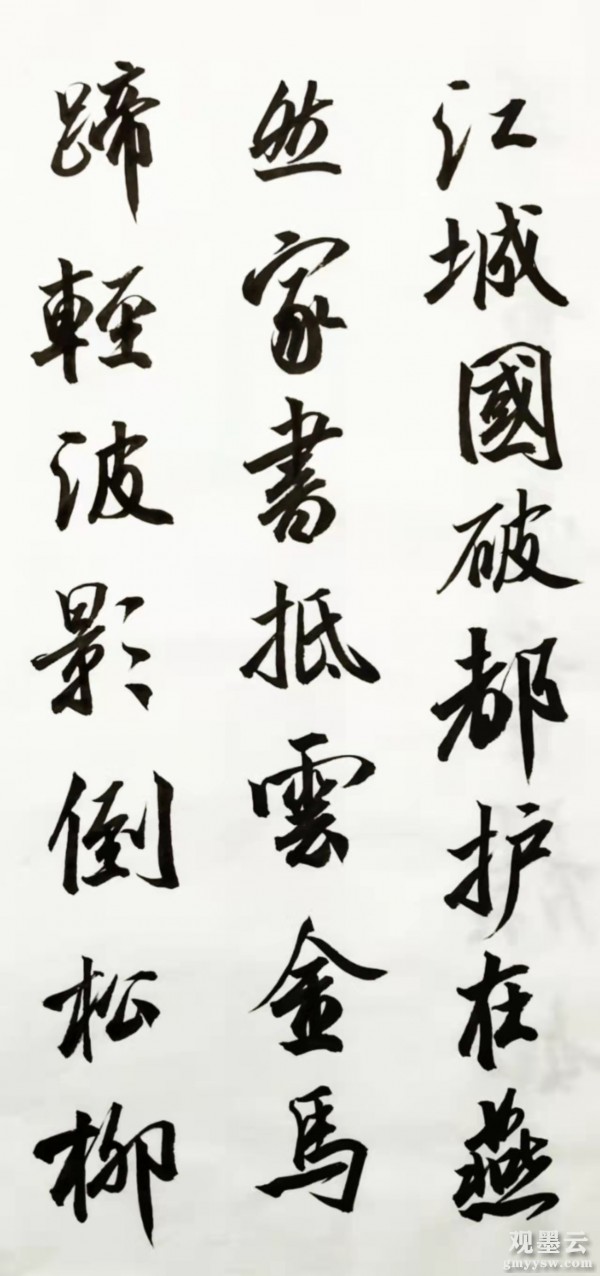 江城國破都护在燕
然家書抵雲金馬
蹄輕波影倒松柳
观墨云
gmyysw.com